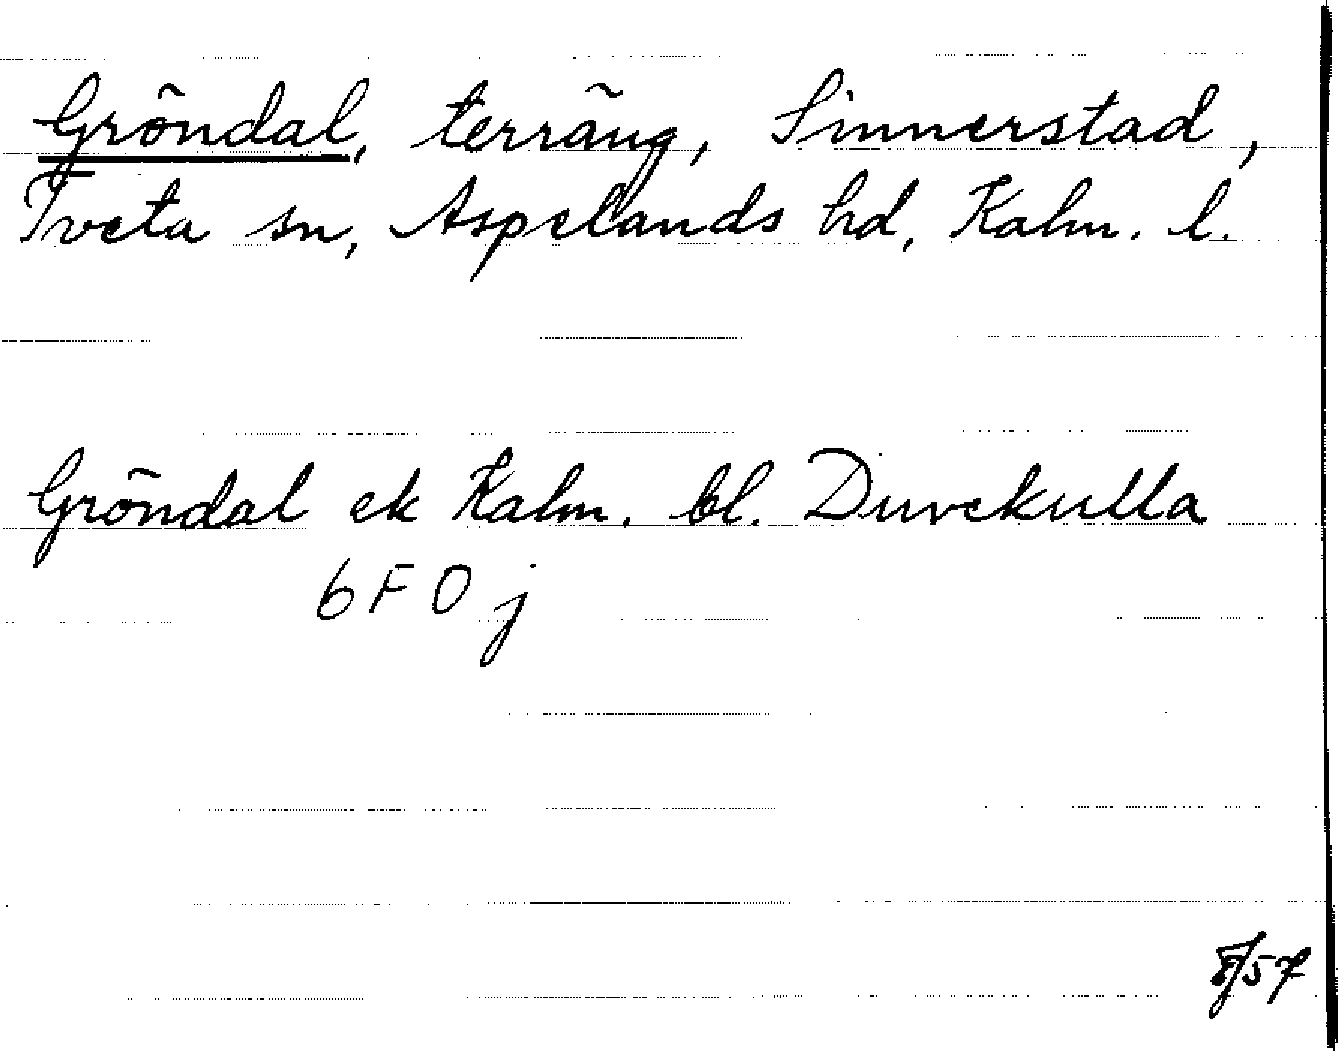 Gröndal, terräng, Sinnerstad,
Tveta sn, Aspelands hd, Kalm. l.
Gröndal ek Kalm. bl. Duvekulla
6 F 0 j